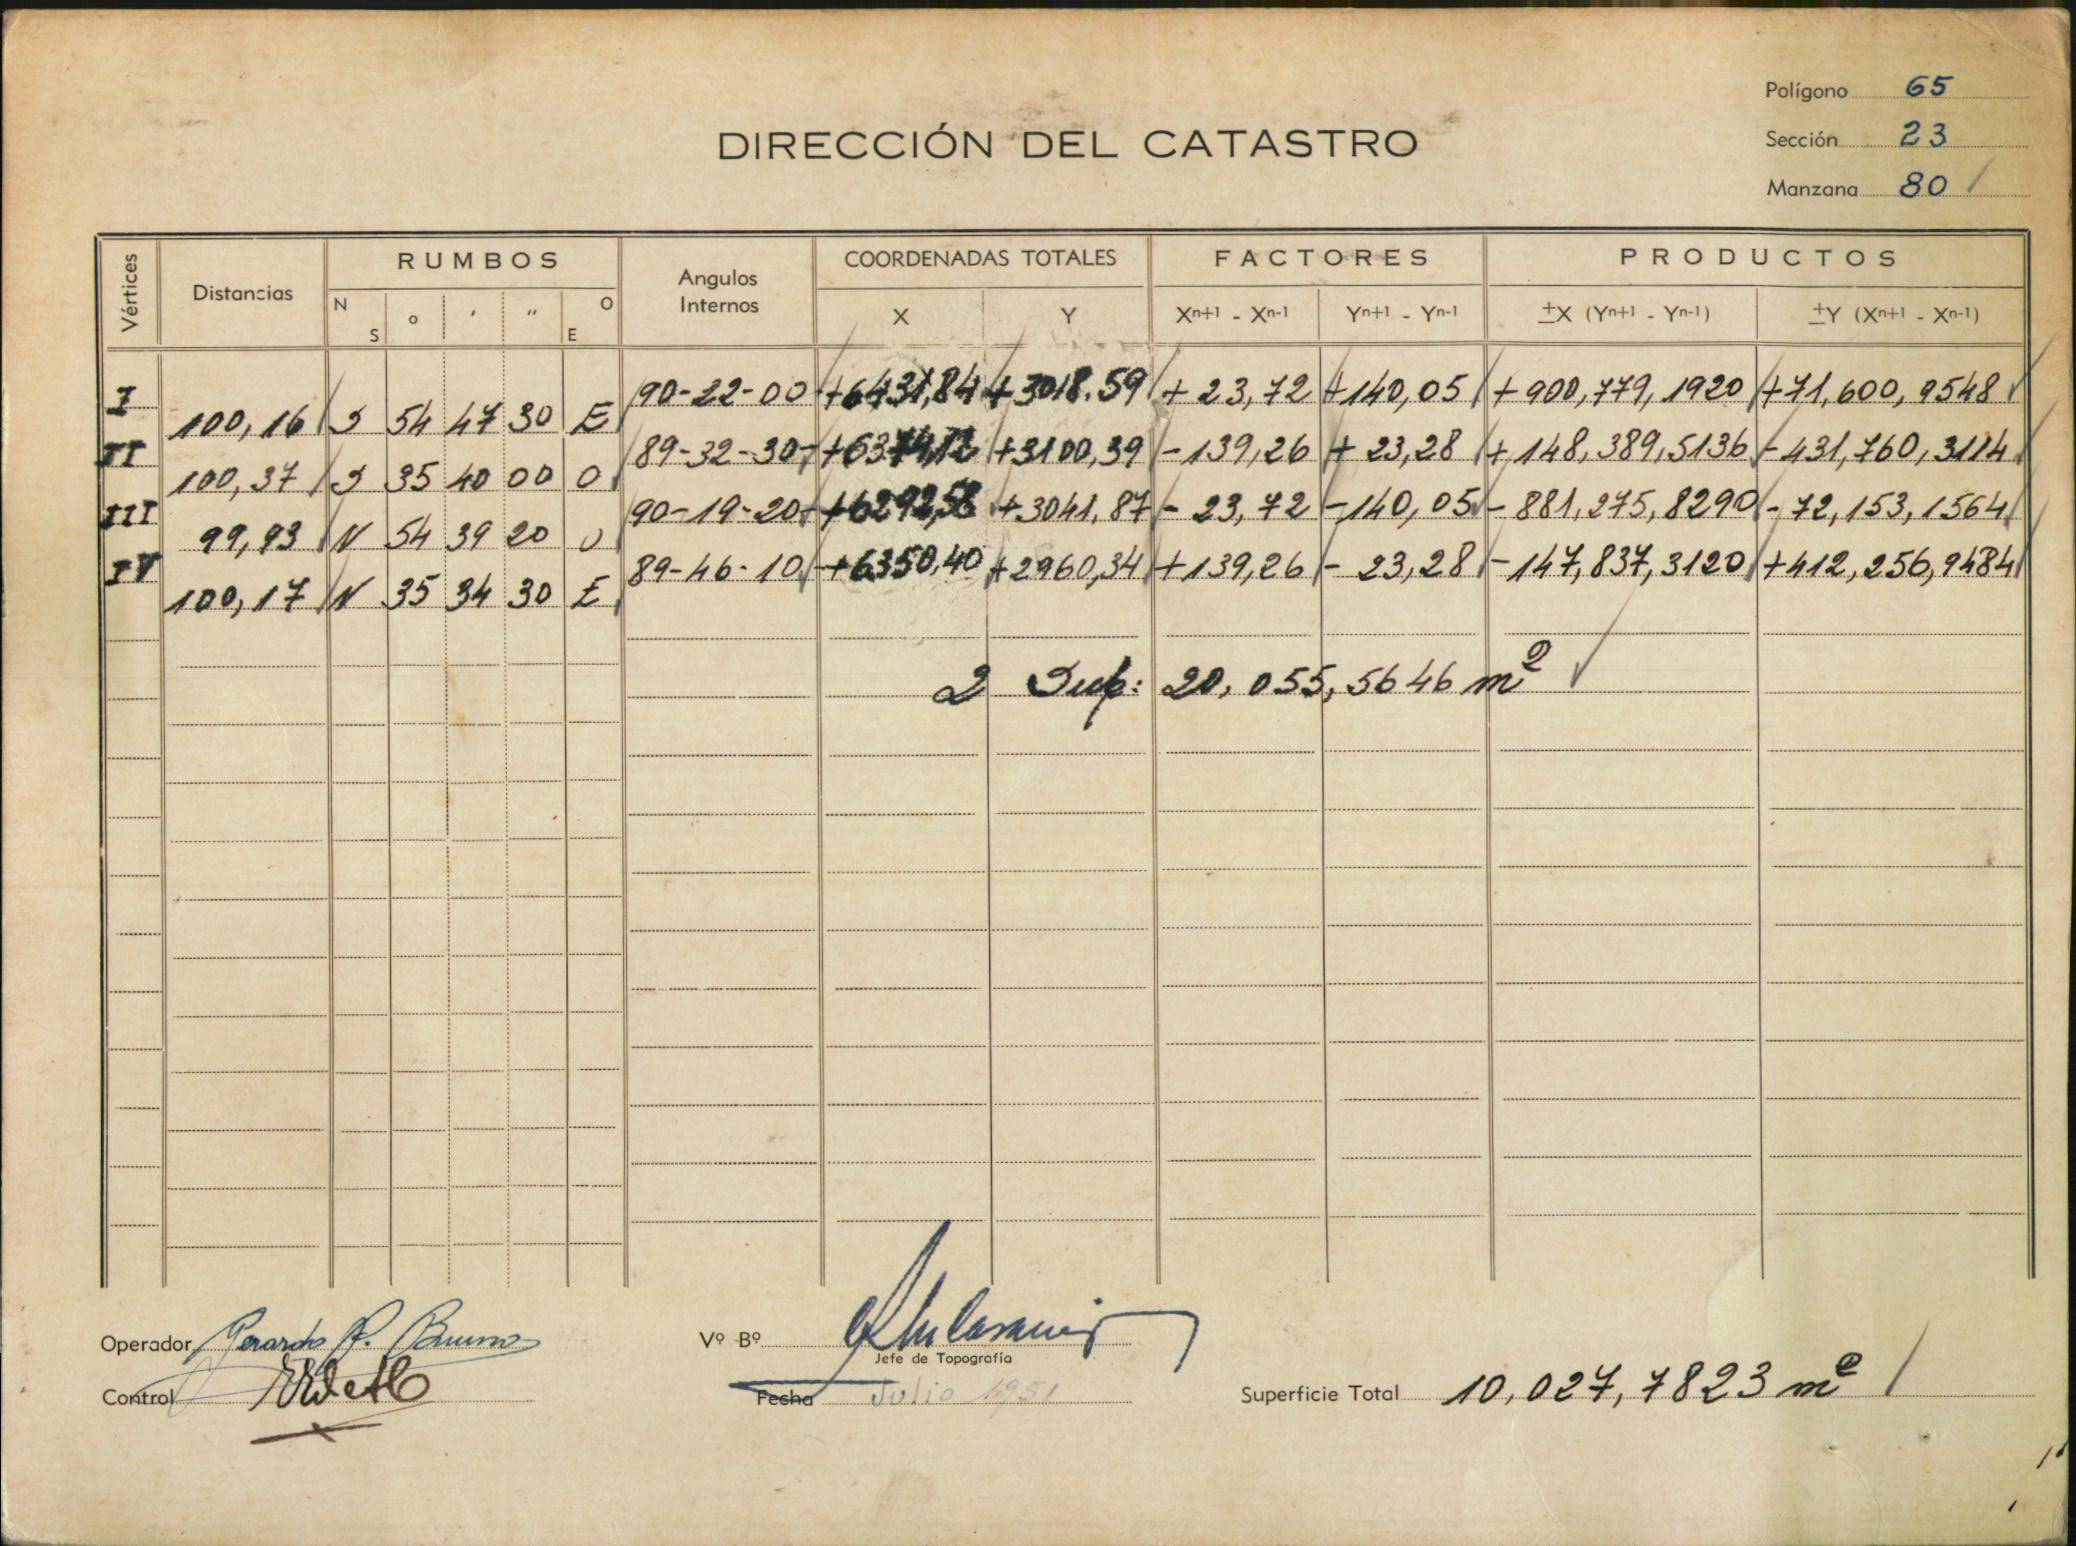 Polígono 65
DIRECCIÓN DEL CATASTRO
Sección 23
Manzana 80
Vértices Distancias RUMBOS Angulos Internos COORDENADAS TOTALES FACTORES PRODUCTOS
N S o ' " O E X Y Xn+1 - Xn-1 Yn+1 - Yn-1 ±X (Yn+1 - Yn-1) ±Y (Xn+1 - Xn-1)
I 90-22-00 +6431,84 +3018.59 + 23,72 +140,05 +900,779,1920 +71,600,9548
100,16 S 54 47 30 E
II 89-32-30 +6374,12 +3100,39 -139,26 + 23,28 +148,389,5136 -431,760,3114
100,37 S 35 40 00 O
III 90-19-20 +6292,58 +3041.87 - 23,72 -140,05 -881,275,8290 -72,153,1564
99,93 N 54 39 20 O
IV 89-46-10 +6350,40 +2960,34 +139,26 - 23,28 -147,837,3120 +412,256,9484
100,17 N 35 34 30 E
2 Sup: 20,055,5646 m2
Operador Gerardo R.
Vº Bº
Jefe de Topografía
Control
Fecha Julio 1951
Superficie Total 10,027,7823 m2